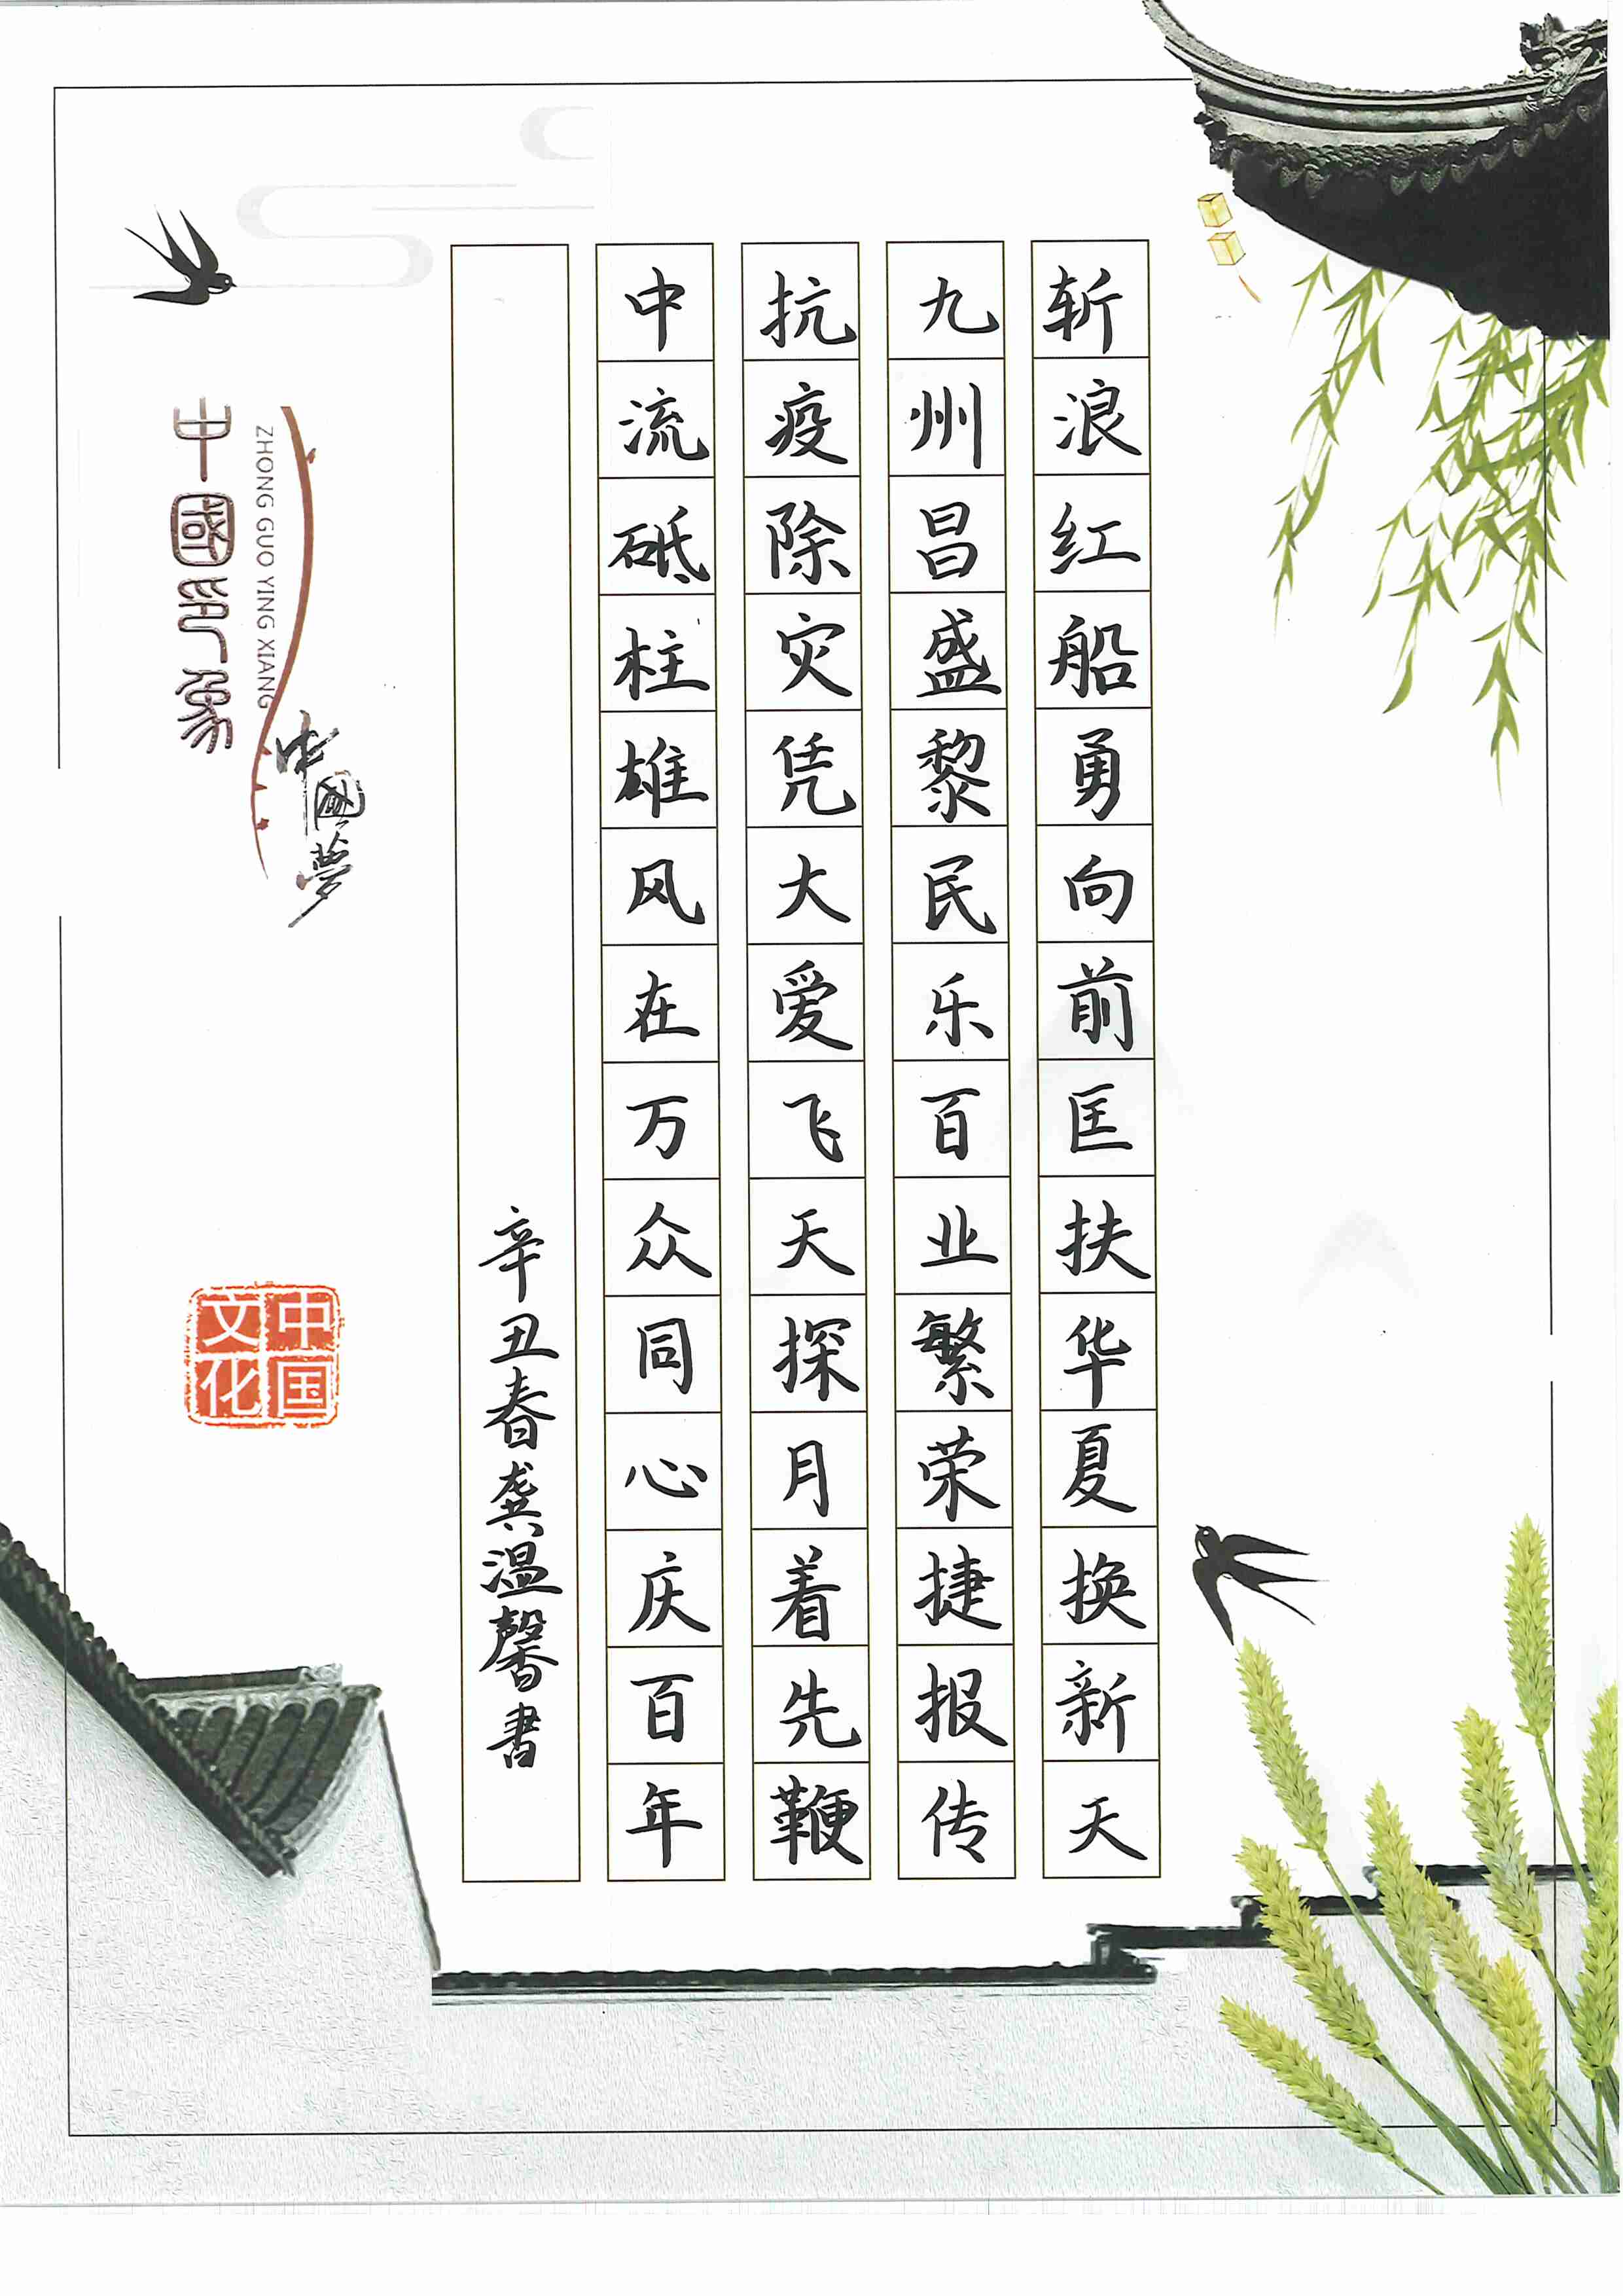 斩浪红船勇向前匡扶华夏换新天
九州昌盛黎民乐百业繁荣捷报传
抗疫除灾凭大爱飞天探月着先鞭
中流砥柱雄风在万众同心庆百年
辛丑春龚温馨书
中國印象
ZHONG GUO YING XIANG
中國夢
中国文化